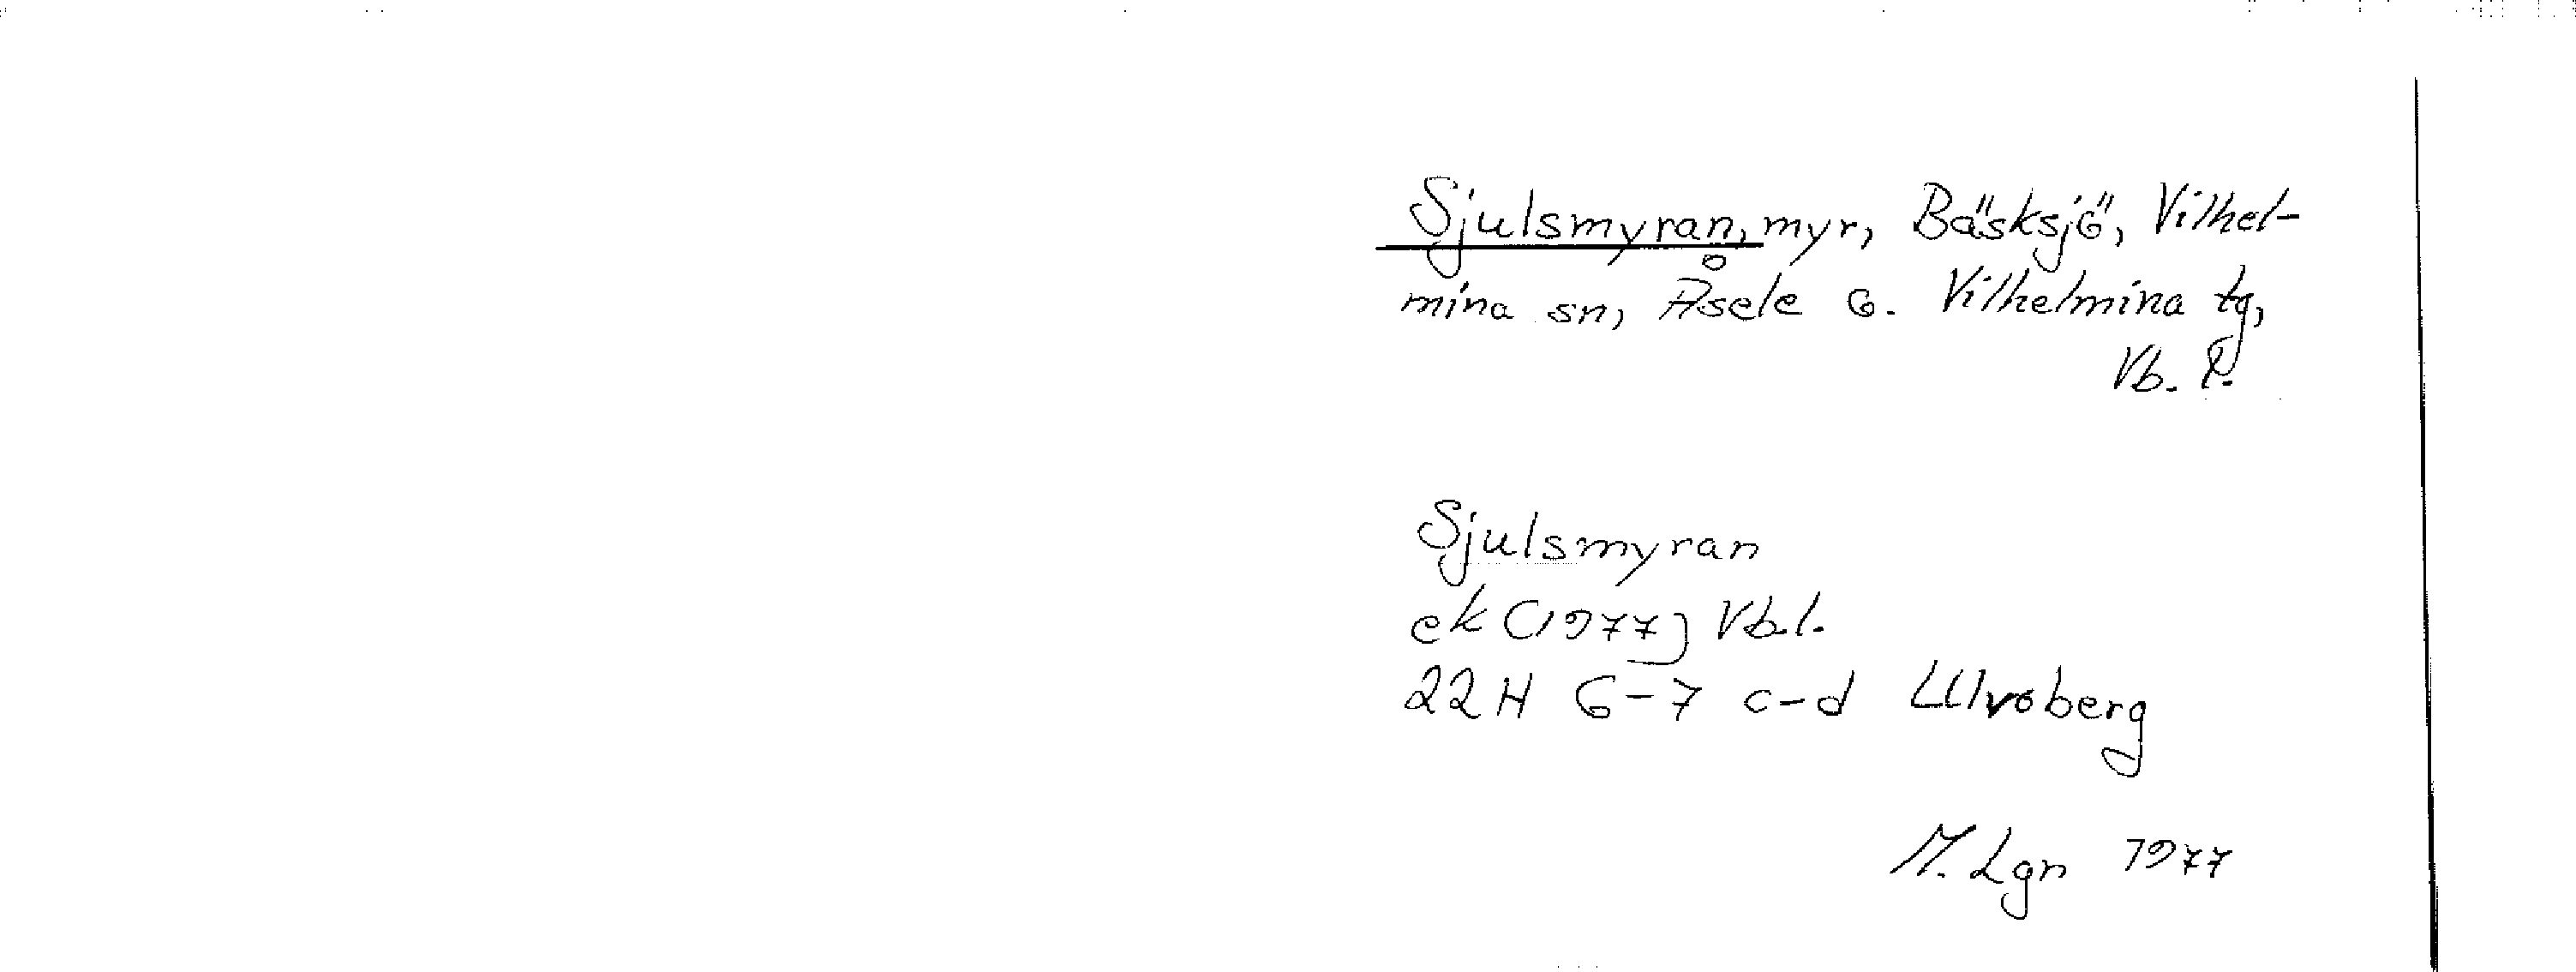 Sjulsmyran, myr, Bäsksjö, Vilhel-
mina sn, Åsele o. Vilhelmina tg,
Vb. l.
Sjulsmyran
ek (1977) Vb.l.
22H 6-7 c-d Ulvoberg
M. Lgn 1977